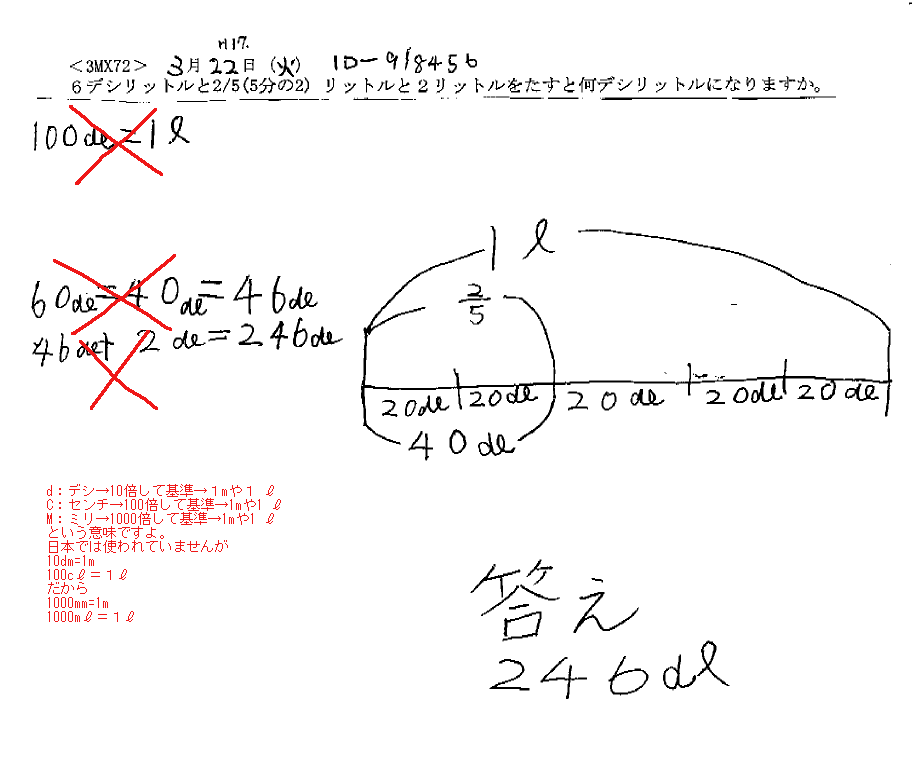 H17.
<3MX72> 3月22日(火) ID-918456
6デシリットルと2/5(5分の2) リットルと2リットルをたすと何デシリットルになりますか。
100dl=1l
1l
2/5
60dl=40dl=46dl
46dl+ 2dl=246dl
20dl 20dl 20dl 20dl 20dl
40dl
d:デシ→10倍して基準→1mや1 ℓ
C:センチ→100倍して基準→1mや1 ℓ
M:ミリ→1000倍して基準→1mや1 ℓ
という意味ですよ。
日本では使われていませんが
10dm=1m
100cℓ=1ℓ
だから
1000mm=1m
1000mℓ=1ℓ
答え
246dl